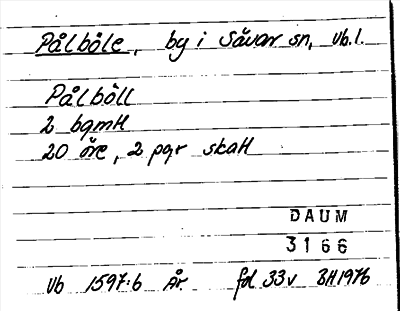 Pålböle, by i Sävar sn, Vb.l.
Pålböll
2 bgmH
20 öre, 2 pgr skaH
DAUM
3166
Vb 1597:6 År fol 33v BH1976